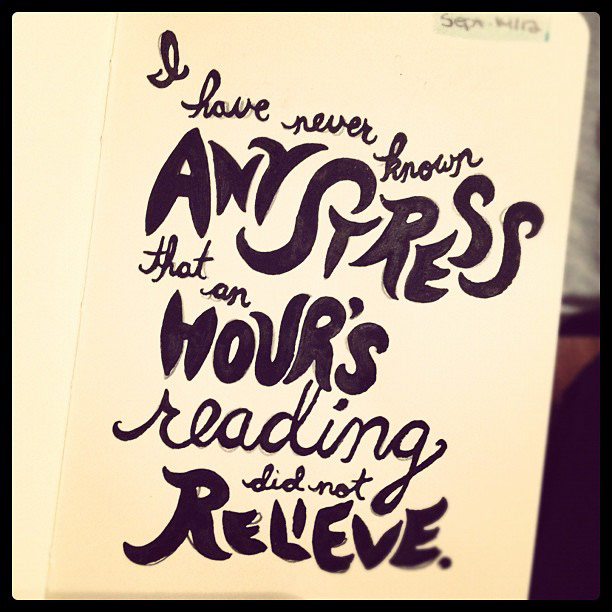 I
have never known
ANY STRESS
that an
HOUR'S
reading
did not
RELIEVE.